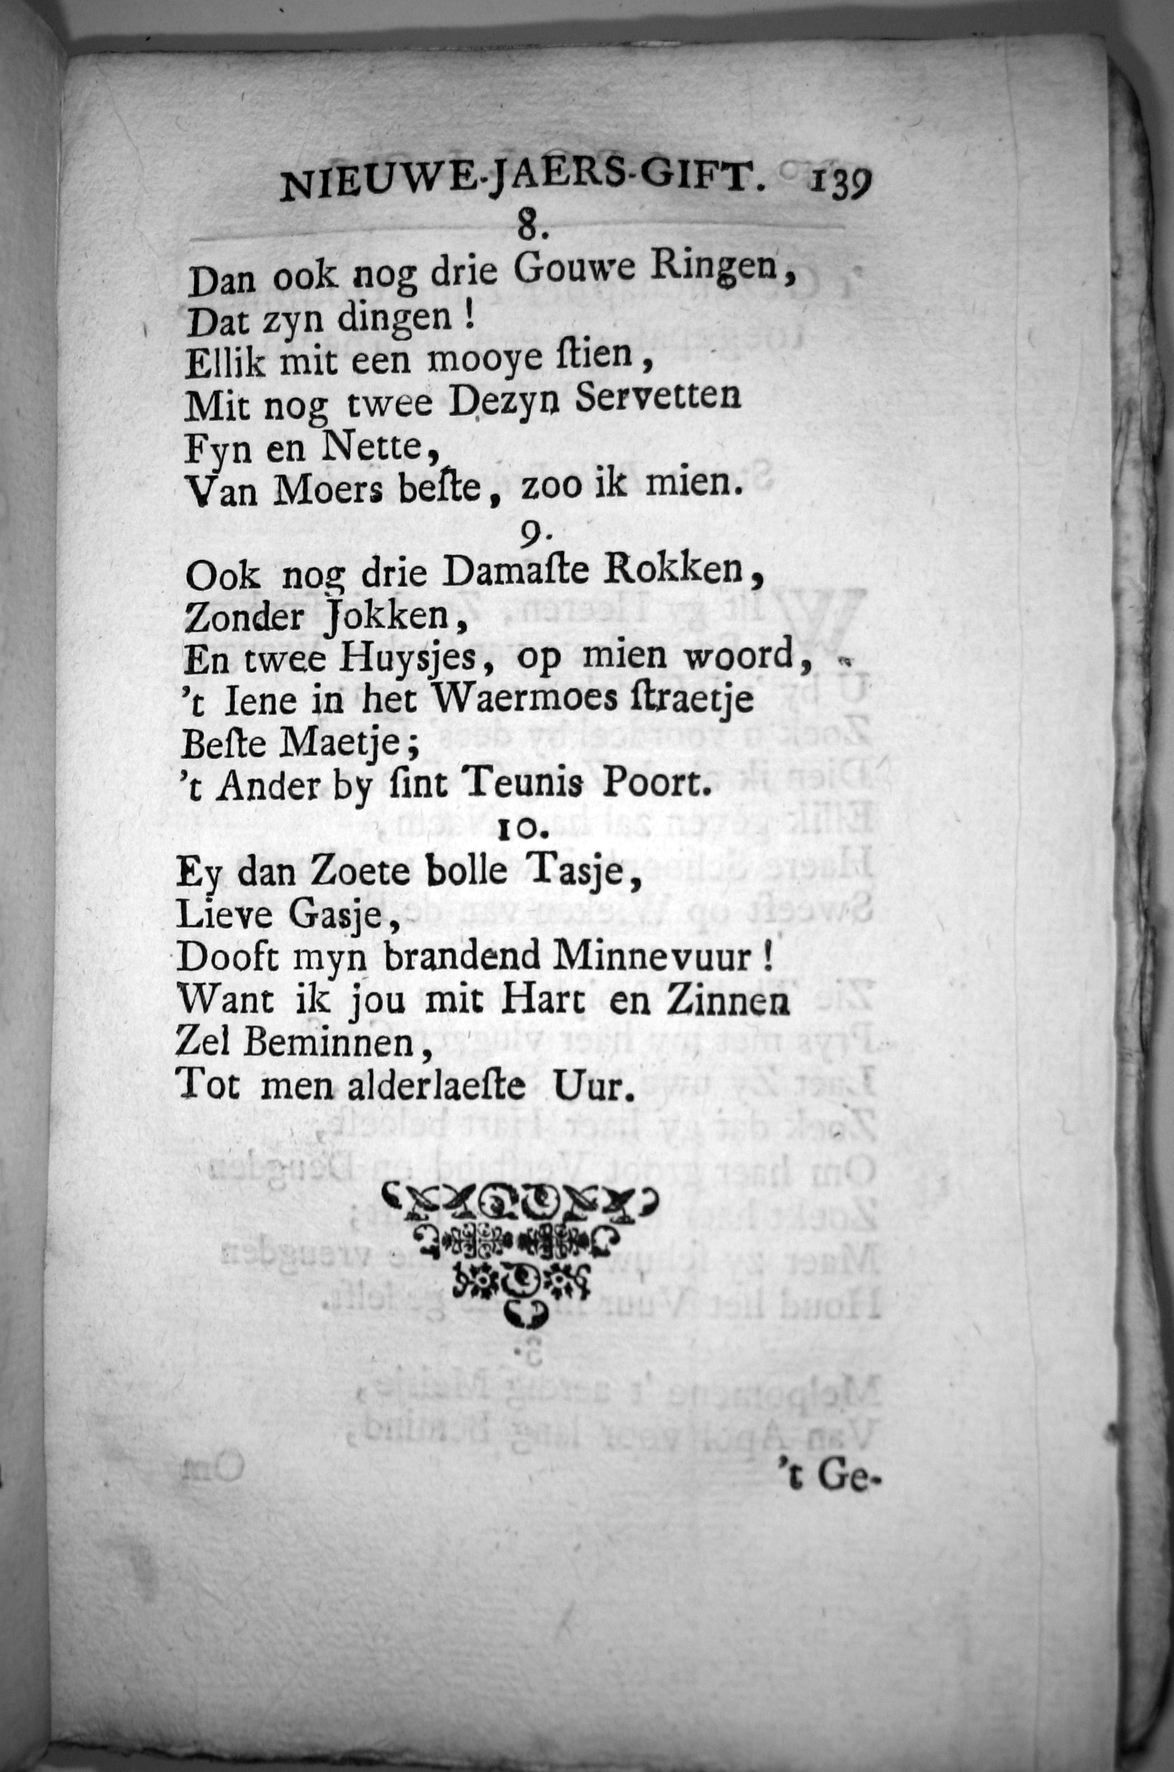 NIEUWE-JAERS-GIFT. 139
8.
Dan ook nog drie Gouwe Ringen,
Dat zyn dingen !
Ellik mit een mooye ſtien,
Mit nog twee Dezyn Servetten
Fyn en Nette,
Van Moers beſte, zoo ik mien.
9.
Ook nog drie Damaſte Rokken,
Zonder Jokken,
En twee Huysjes, op mien woord,
't Iene in het Waermoes ſtraetje
Beſte Maetje;
't Ander by ſint Teunis Poort.
10.
Ey dan Zoete bolle Tasje,
Lieve Gasje,
Dooft myn brandend Minnevuur !
Want ik jou mit Hart en Zinnen
Zel Beminnen,
Tot men alderlaeſte Uur.
't Ge-